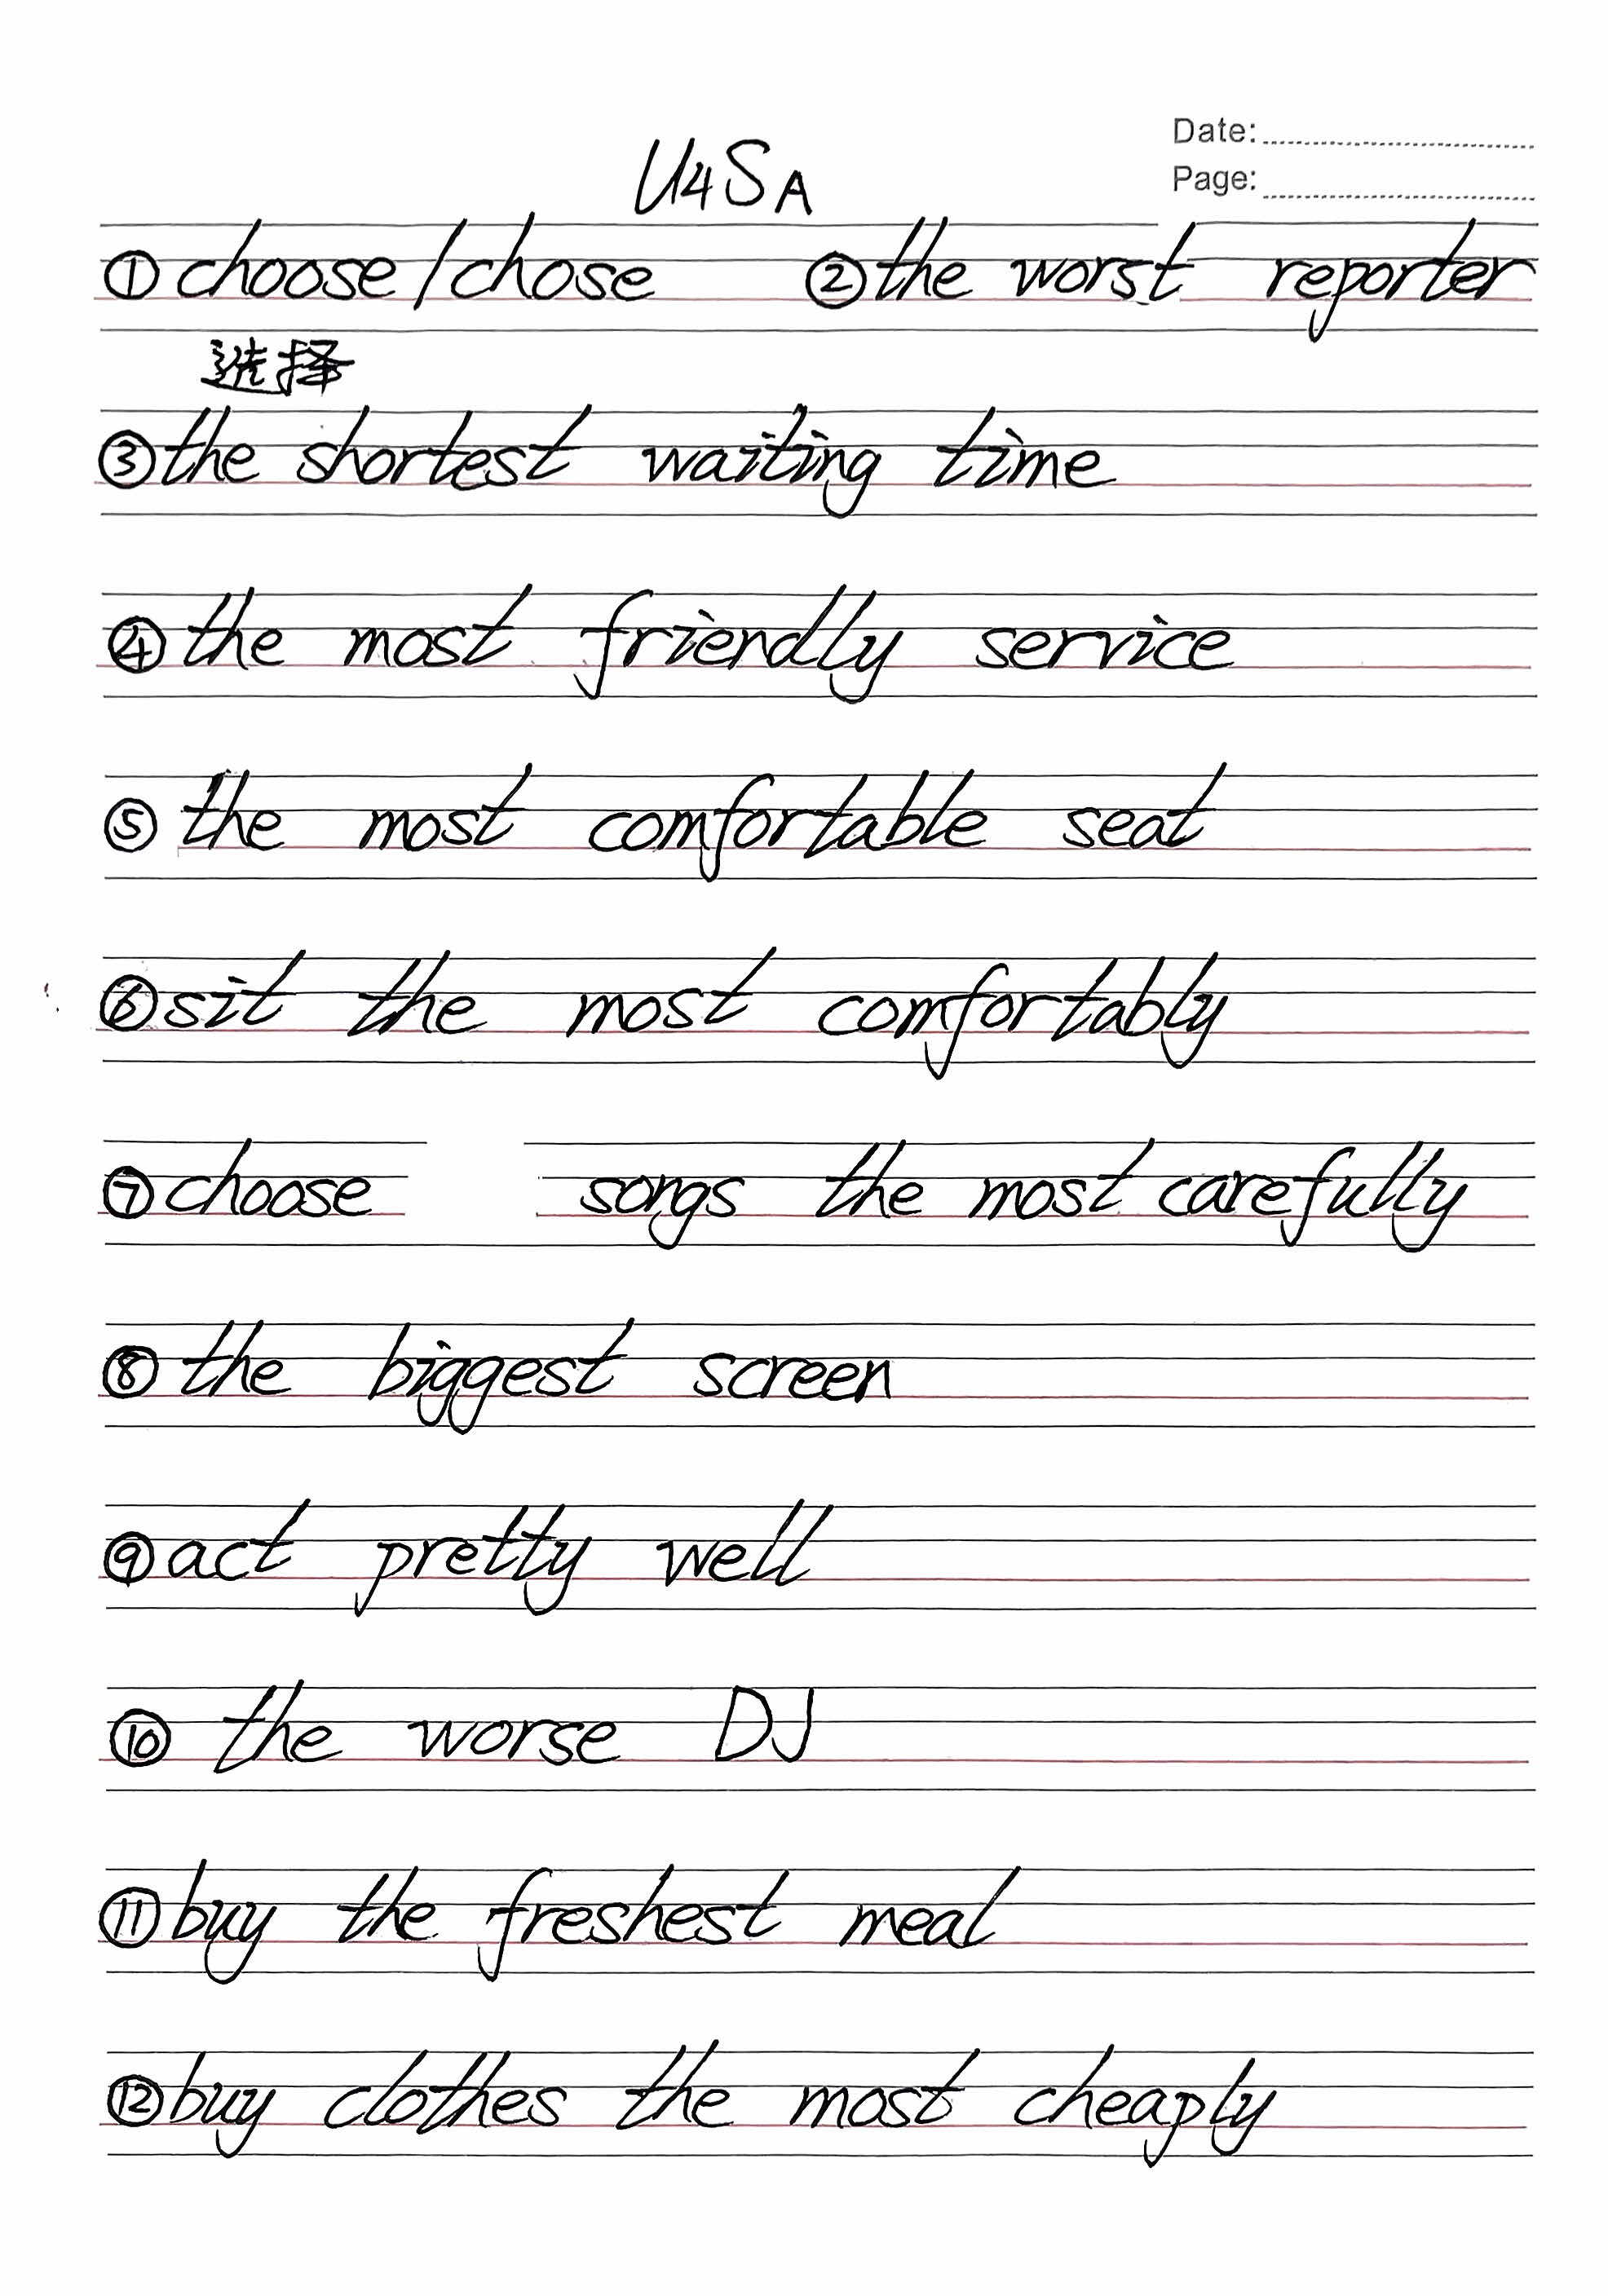 Date:
Page:
U4SA
① choose/chose ② the worst reporter
選择
③ the shortest waiting time
④ the most friendly service
⑤ the most comfortable seat
⑥ sit the most comfortably
⑦ choose songs the most carefully
⑧ the biggest screen
⑨ act pretty well
⑩ the worse DJ
⑪ buy the freshest meal
⑫ buy clothes the most cheaply